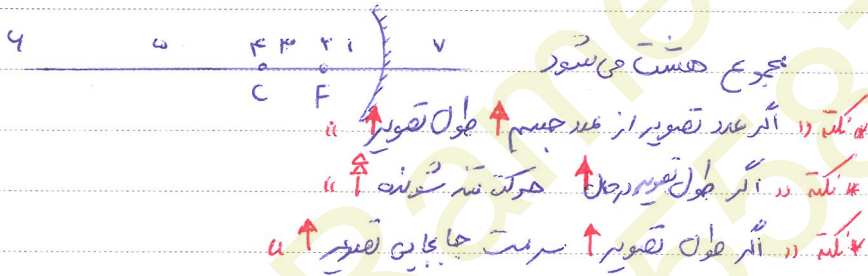 ۶ ۵ ۴ ۳ ۲ ۱ ۷
C F
مجموع هشت می‌شود
* نکته « اگر عدد تصویر از عدد جسم ↑ طول تصویر ↑ »
* نکته « اگر طول تصویر درحال ↑ حرکت تند شونده ↑ »
* نکته « اگر طول تصویر ↑ سرعت جابجایی تصویر ↑ »